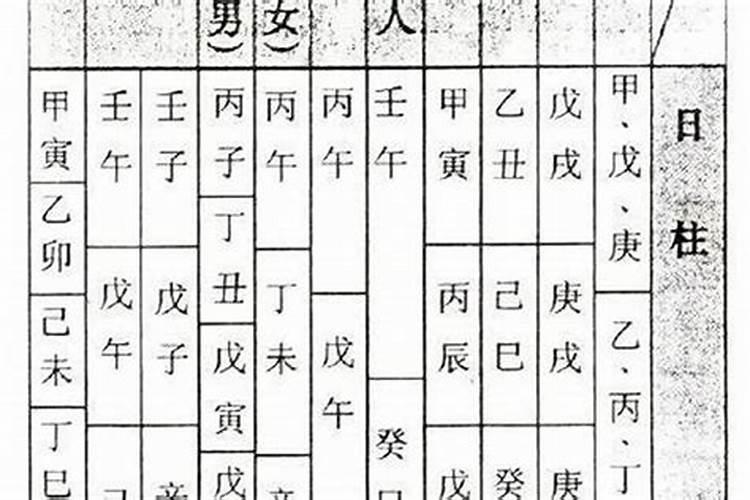 日柱
甲、戊、庚
乙、丙、丁
戊戌
庚戌
庚
乙丑
己巳
癸
甲寅
丙辰
戊
人
壬午
癸
丙午
戊午
女）
丙午
丁未
男）
丙子
丁丑
戊寅
戊
壬子
戊子
壬午
戊午
甲寅
乙卯
己未
丁巳